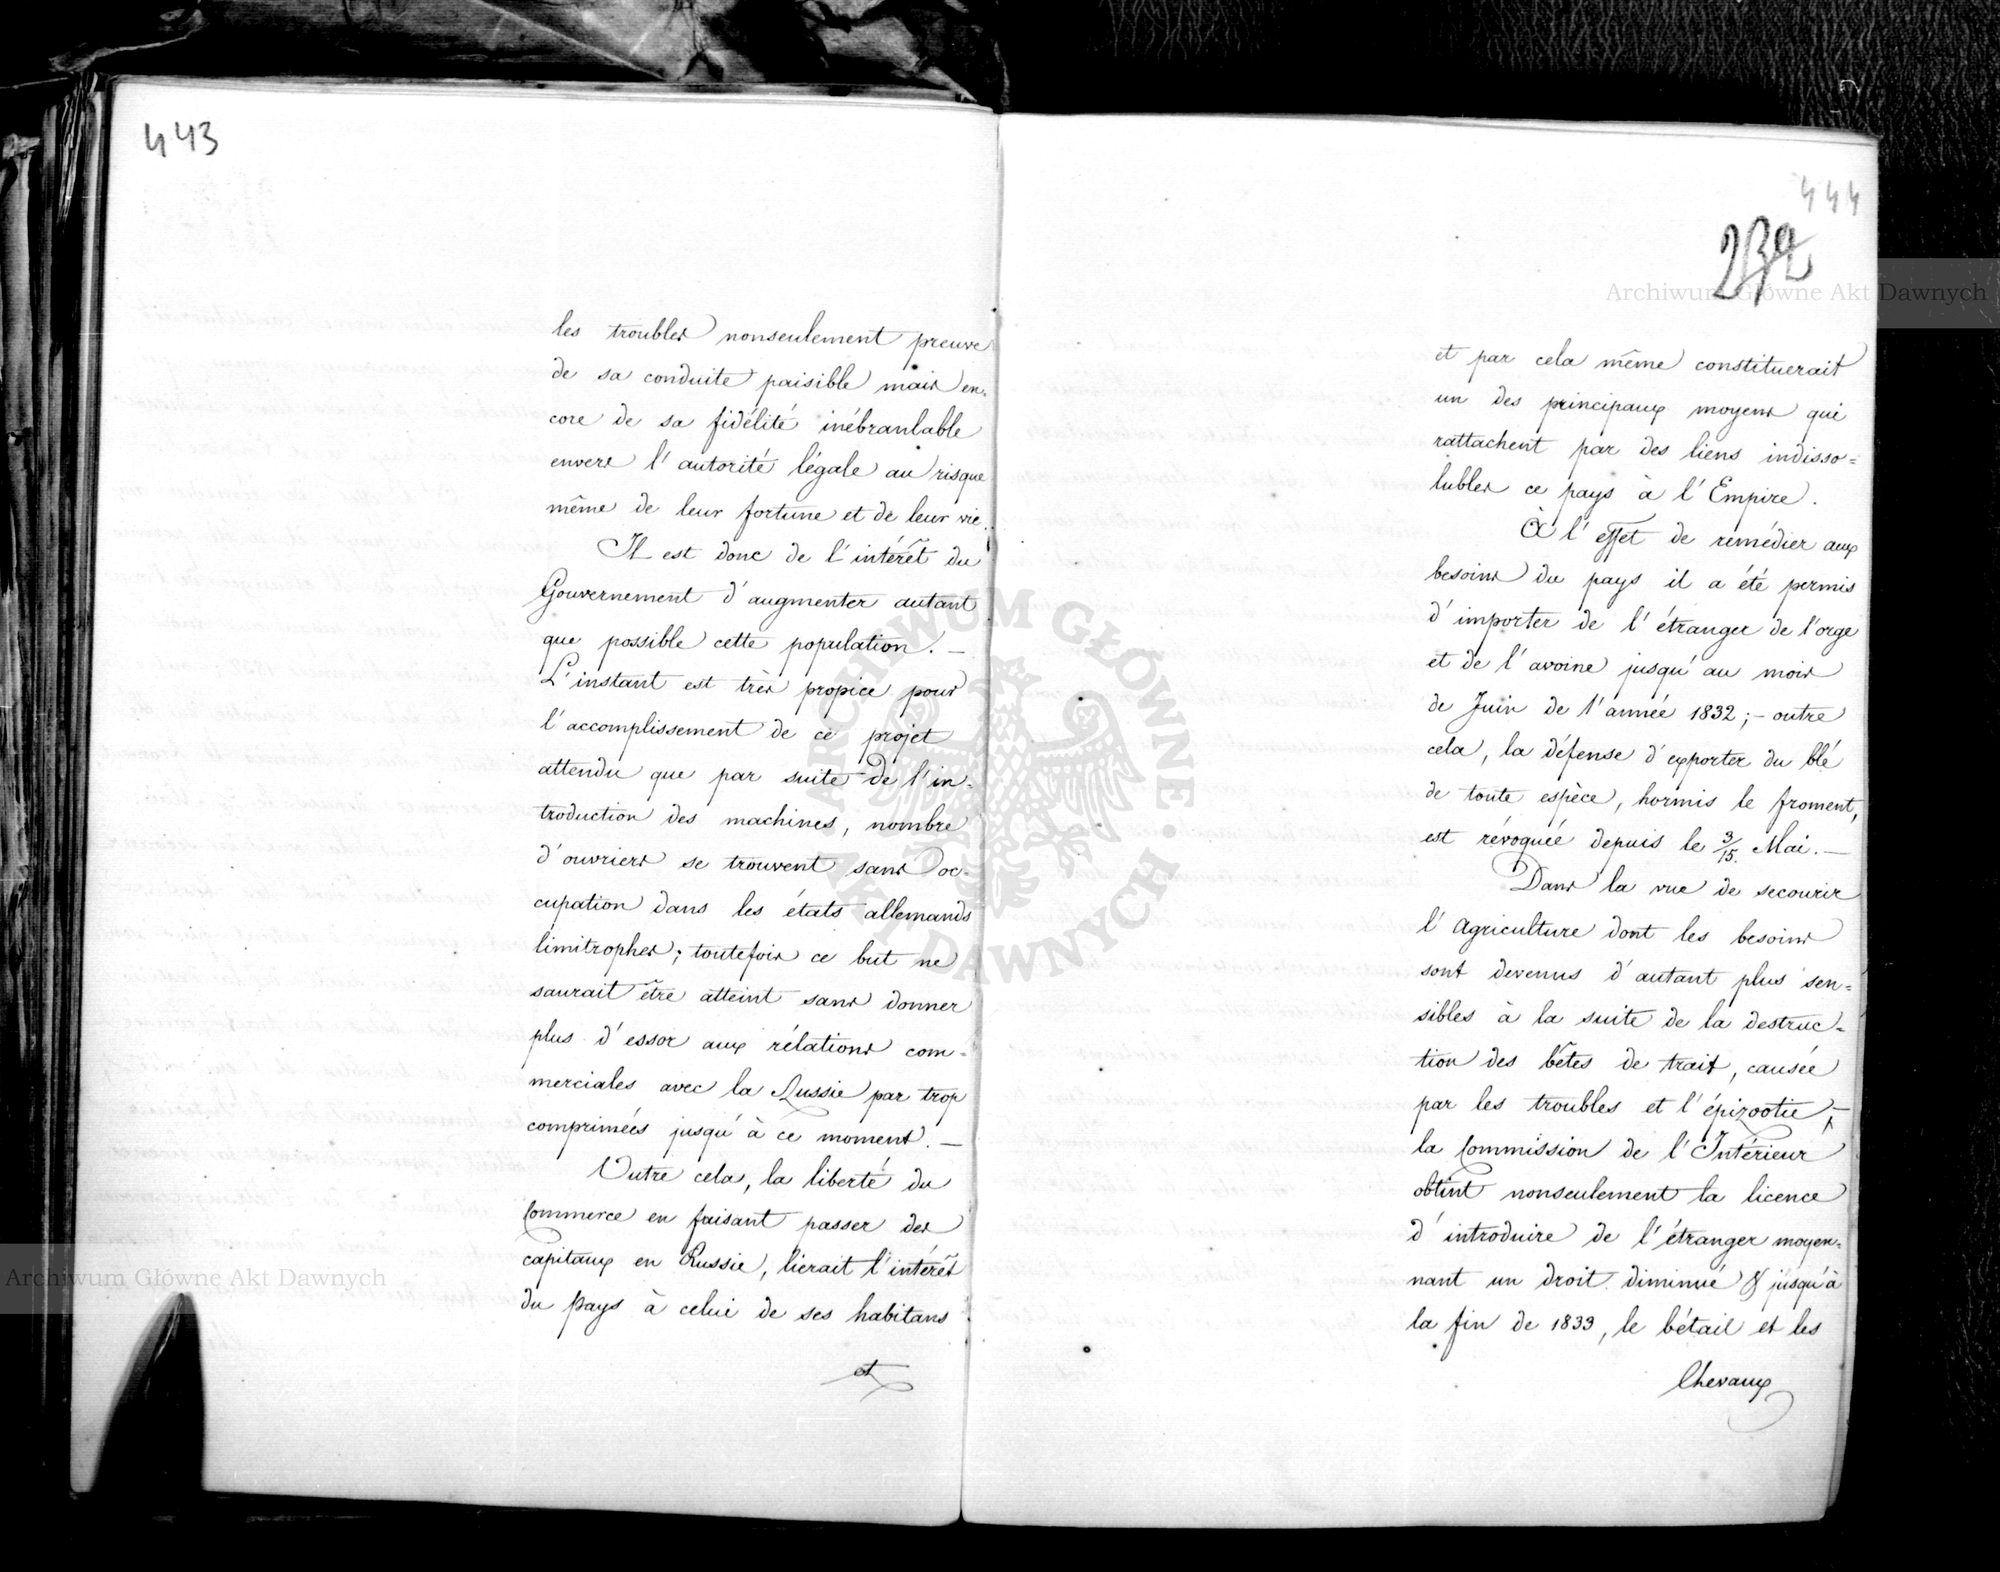 443
les troubles nonseulement preuve
de sa conduite paisible mais en-
core de sa fidélité inébranlable
envers l'autorité légale au risque
même de leur fortune et de leur vie.
Il est donc de l'intérêt du
Gouvernement d'augmenter autant
que possible cette population. —
L'instant est très propice pour
l'accomplissement de ce projet
attendu que par suite de l'in-
troduction des machines, nombre
d'ouvriers se trouvent sans oc-
cupation dans les états allemands
limitrophes; toutefois ce but ne
saurait être atteint sans donner
plus d'essor aux rélations com-
merciales avec la Russie par trop
comprimées jusqu'à ce moment. —
Outre cela, la liberté du
Commerce en faisant passer des
capitaux en Russie, lierait l'intérêt
du pays à celui de ses habitans
et
444
232
et par cela même constituerait
un des principaux moyens qui
rattachent par des liens indisso=
lubles ce pays à l'Empire.
À l'effet de remédier aux
besoins du pays il a été permis
d'importer de l'étranger de l'orge
et de l'avoine jusqu'au mois
de Juin de l'année 1832; — outre
cela, la défense d'exporter du blé
de toute espèce, hormis le froment,
est révoquée depuis le 3/15. Mai. —
Dans la vue de secourir
l'Agriculture dont les besoins
sont devenus d'autant plus sen=
sibles à la suite de la destruc=
tion des bêtes de trait, causée
par les troubles et l'épizootie; —
la Commission de l'Intérieur
obtint nonseulement la licence
d'introduire de l'étranger moyen=
nant un droit diminué & jusqu'à
la fin de 1833, le bétail et les
Chevaux
Archiwum Główne Akt Dawnych
Archiwum Główne Akt Dawnych
ARCHIWUM GŁÓWNE AKT DAWNYCH